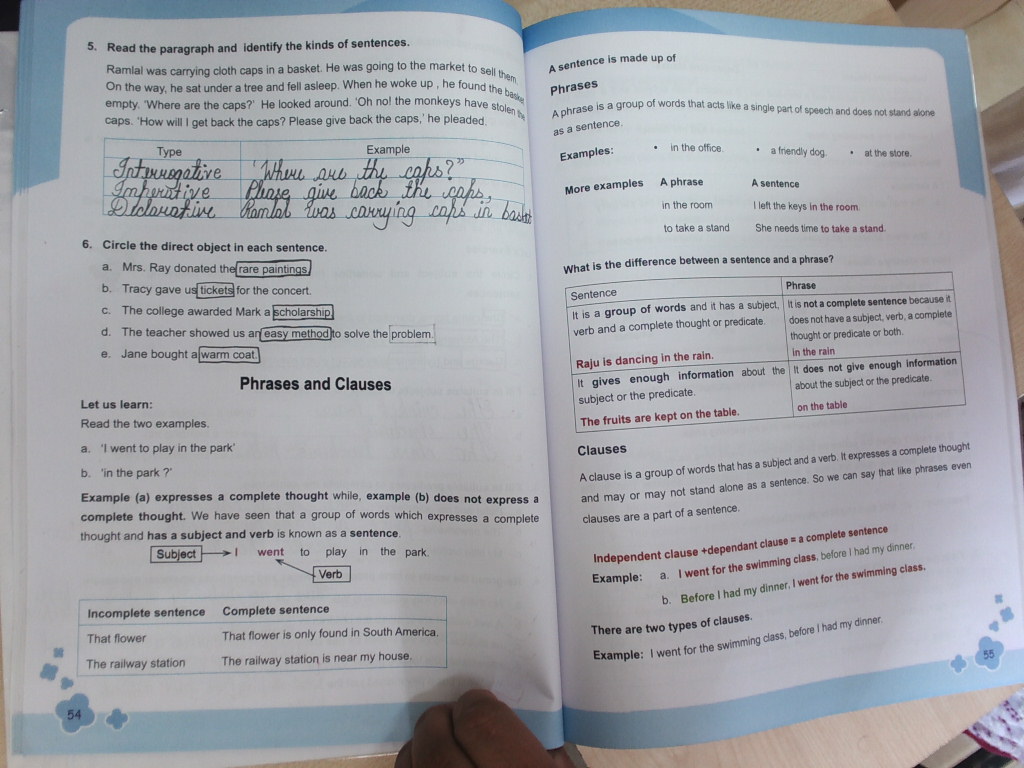 5. Read the paragraph and identify the kinds of sentences.
Ramlal was carrying cloth caps in a basket. He was going to the market to sell them.
On the way, he sat under a tree and fell asleep. When he woke up , he found the basket
empty. 'Where are the caps?' He looked around. 'Oh no! the monkeys have stolen the
caps. 'How will I get back the caps? Please give back the caps,' he pleaded.
Type Example
Interrogative 'Where are the caps?"
Imperative Please give back the caps,
Declarative Ramlal was carrying caps in basket
6. Circle the direct object in each sentence.
a. Mrs. Ray donated the rare paintings.
b. Tracy gave us tickets for the concert.
c. The college awarded Mark a scholarship.
d. The teacher showed us an easy method to solve the problem.
e. Jane bought a warm coat.
Phrases and Clauses
Let us learn:
Read the two examples.
a. 'I went to play in the park'
b. 'in the park ?'
Example (a) expresses a complete thought while, example (b) does not express a
complete thought. We have seen that a group of words which expresses a complete
thought and has a subject and verb is known as a sentence.
Subject I went to play in the park.
Verb
Incomplete sentence Complete sentence
That flower That flower is only found in South America.
The railway station The railway station is near my house.
54
A sentence is made up of
Phrases
A phrase is a group of words that acts like a single part of speech and does not stand alone
as a sentence.
Examples: • in the office. • a friendly dog. • at the store.
More examples A phrase A sentence
in the room I left the keys in the room.
to take a stand She needs time to take a stand.
What is the difference between a sentence and a phrase?
Sentence Phrase
It is a group of words and it has a subject, It is not a complete sentence because it
verb and a complete thought or predicate. does not have a subject, verb, a complete
thought or predicate or both.
Raju is dancing in the rain. in the rain
It gives enough information about the It does not give enough information
subject or the predicate. about the subject or the predicate.
The fruits are kept on the table. on the table
Clauses
A clause is a group of words that has a subject and a verb. It expresses a complete thought
and may or may not stand alone as a sentence. So we can say that like phrases even
clauses are a part of a sentence.
Independent clause +dependant clause = a complete sentence
Example: a. I went for the swimming class, before I had my dinner.
b. Before I had my dinner, I went for the swimming class.
There are two types of clauses.
Example: I went for the swimming class, before I had my dinner.
55